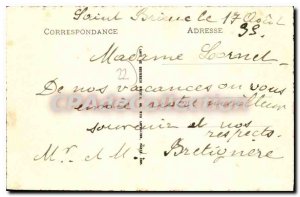 Saint Brieuc le 17 Août
38.
CORRESPONDANCE
ADRESSE
Madame Lornet
De nos vacances on vous
envoie notre meilleur
souvenir et nos
respects.
Mr. et M. Bretignère
22